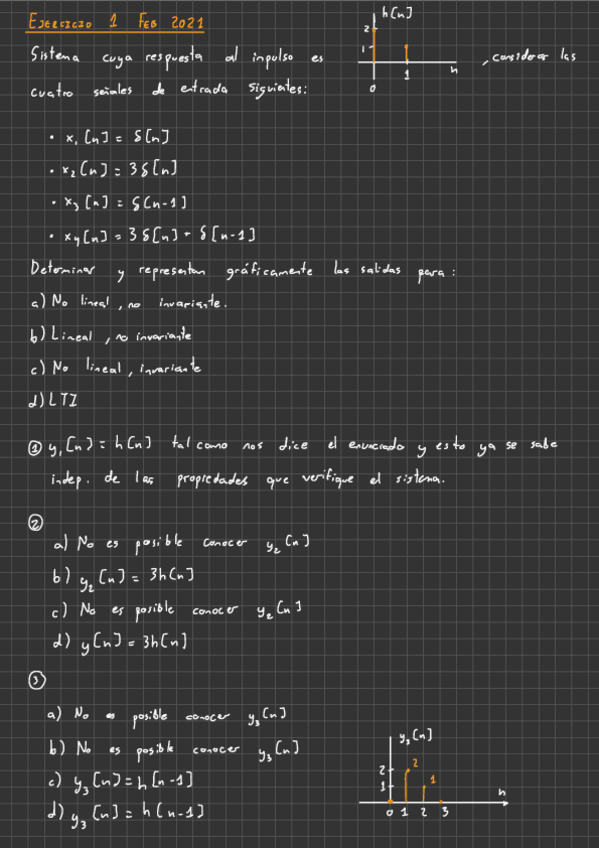 EJERCICIO 1 FEB 2021
h[n]
2
1
0 1 n
Sistema cuya respuesta al impulso es , considerar las
cuatro señales de entrada siguientes:
• x₁[n] = δ[n]
• x₂[n] = 3δ[n]
• x₃[n] = δ[n-1]
• x₄[n] = 3δ[n] + δ[n-1]
Determinar y representar gráficamente las salidas para:
a) No lineal, no invariante.
b) Lineal, no invariante
c) No lineal, invariante
d) LTI
① y₁[n] = h[n] tal como nos dice el enunciado y esto ya se sabe
indep. de las propiedades que verifique el sistema.
②
a) No es posible conocer y₂[n]
b) y₂[n] = 3h[n]
c) No es posible conocer y₂[n]
d) y[n] = 3h[n]
③
a) No es posible conocer y₃[n]
b) No es posible conocer y₃[n]
c) y₃[n] = h[n-1]
d) y₃[n] = h[n-1]
y₃[n]
2 2
1 1
n
0 1 2 3